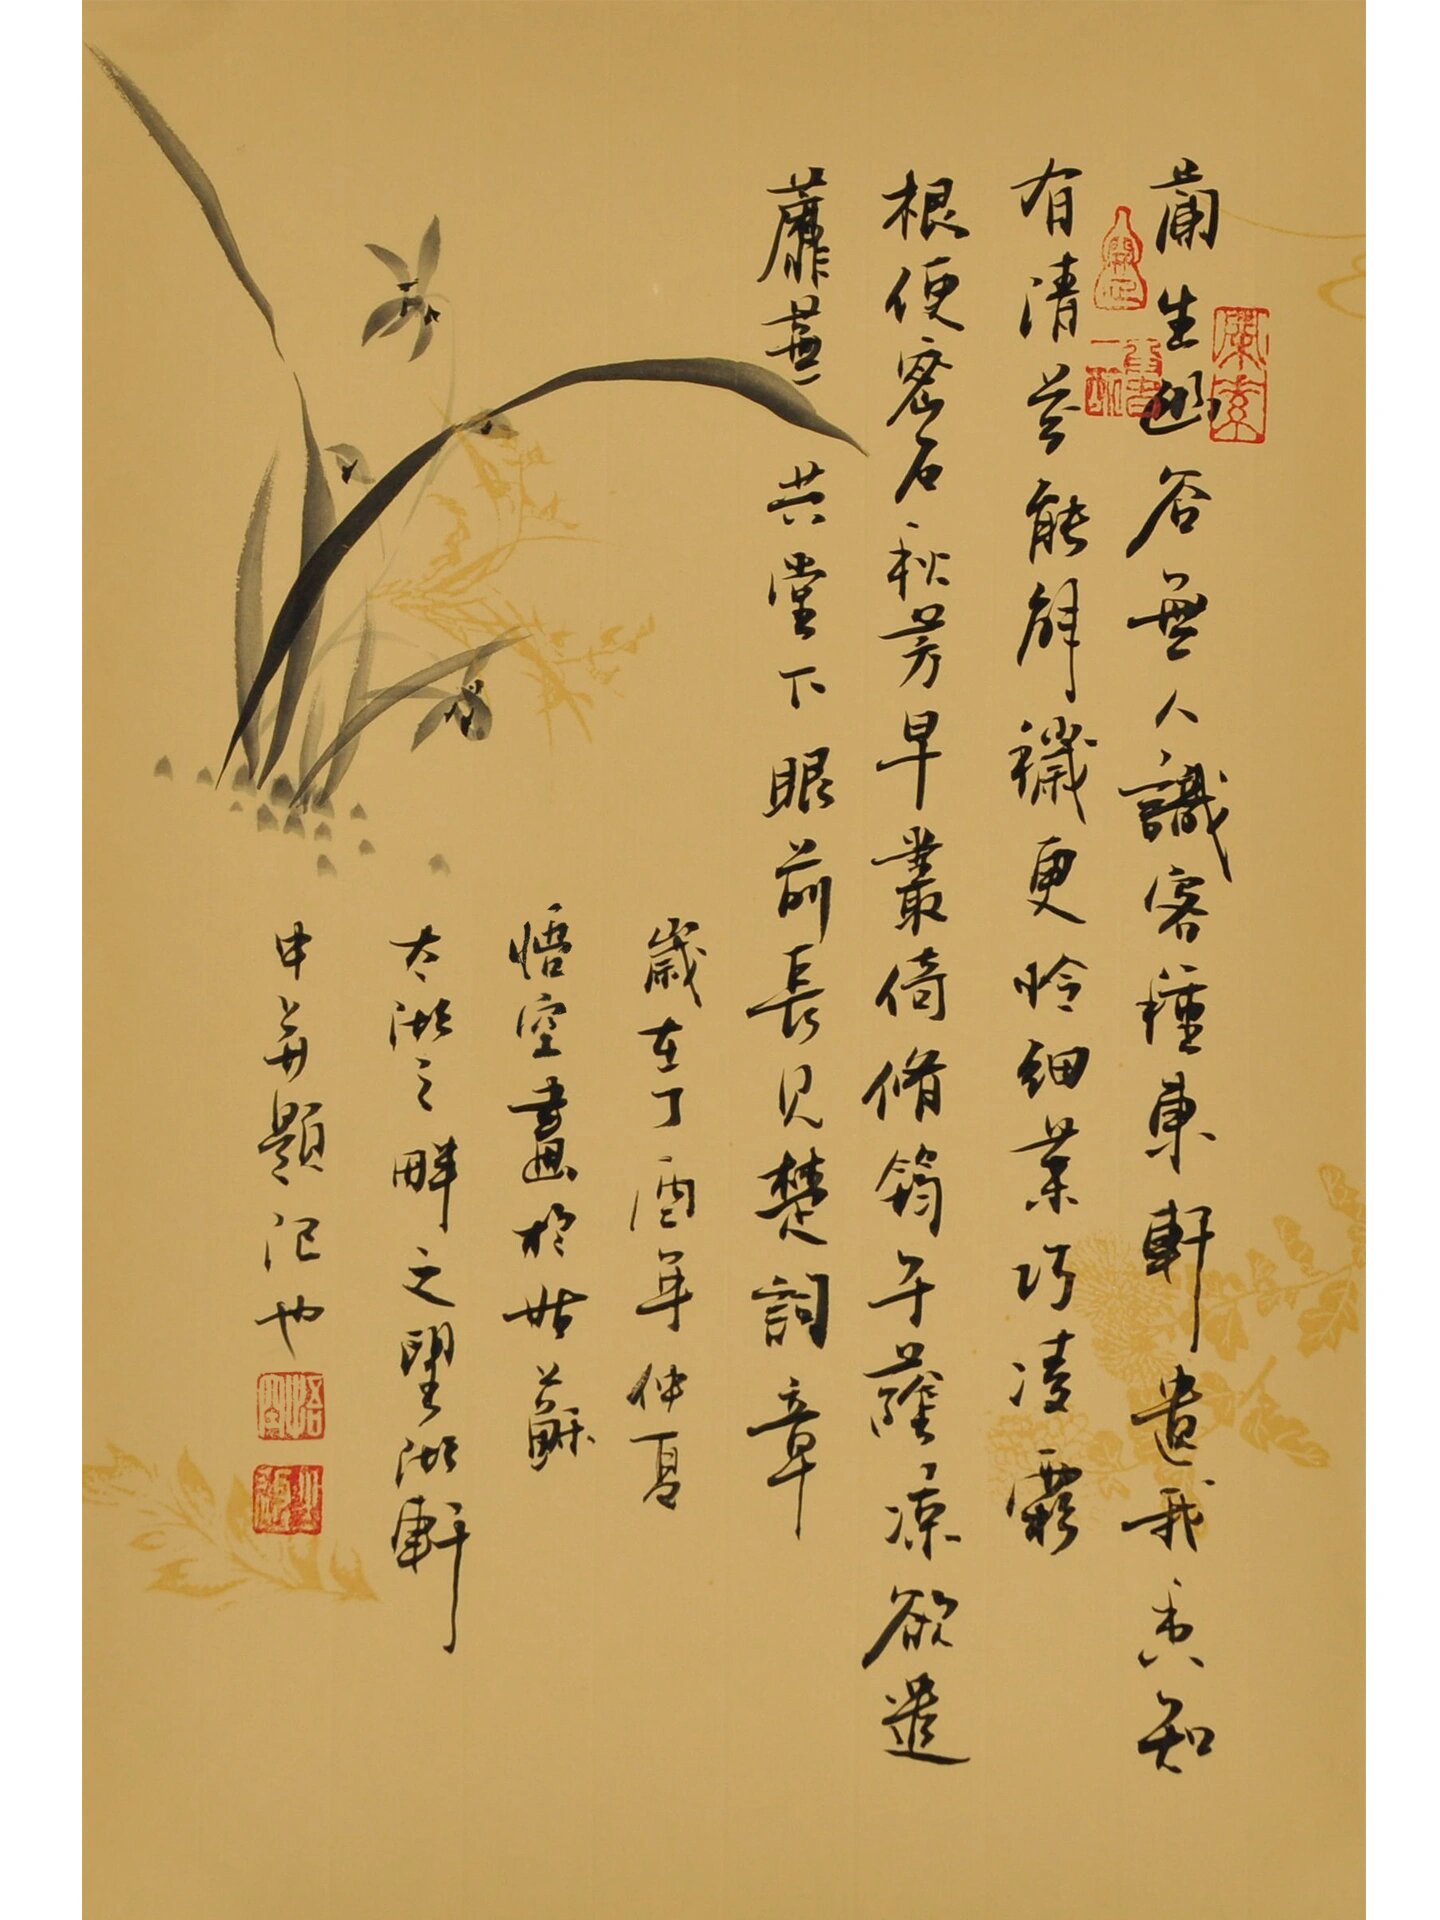 蘭生幽谷無人識客種東軒遺我香知
有清芬能解穢更憐細葉巧凌霜
根便密石秋芳早叢倚脩筠午蔭涼欲遣
蘼蕪共堂下眼前長見楚詞章
歲在丁酉年仲夏
悟空畫於姑蘇
太湖之畔之望湖軒
中并題記也
悟空